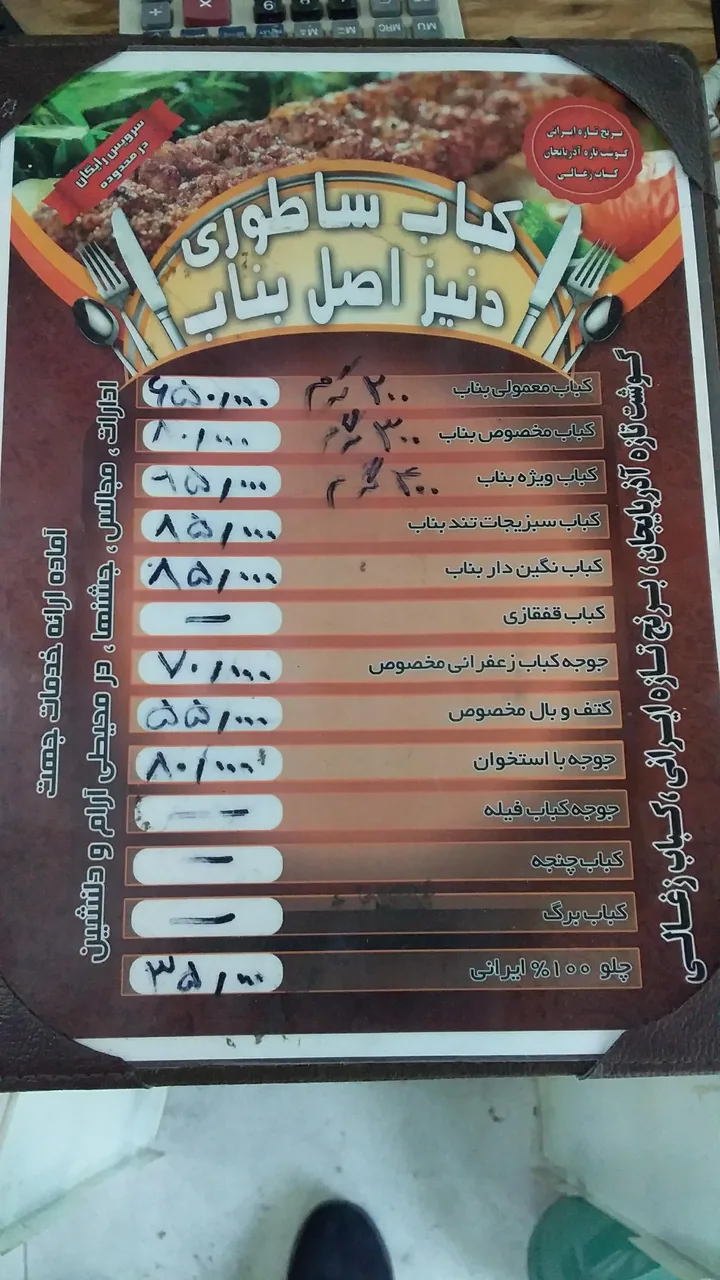 سرویس رایگان
در محدوده
برنج تازه ایرانی
گوشت تازه آذربایجان
کباب زغالی
کباب ساطوری
دنیز اصل بناب
کباب معمولی بناب ۲۰۰ گرم ۶۵۰/۰۰۰
کباب مخصوص بناب ۳۰۰ گرم ۸۰/۰۰۰
کباب ویژه بناب ۴۰۰ گرم ۹۵/۰۰۰
کباب سبزیجات تند بناب ۸۵/۰۰۰
کباب نگین دار بناب ۸۵/۰۰۰
کباب قفقازی —
جوجه کباب زعفرانی مخصوص ۷۰/۰۰۰
کتف و بال مخصوص ۵۵/۰۰۰
جوجه با استخوان ۸۰/۰۰۰
جوجه کباب فیله — —
کباب چنجه —
کباب برگ —
چلو ۱۰۰% ایرانی ۳۵/۰۰۰
گوشت تازه آذربایجان، برنج تازه ایرانی، کباب زغالی
آماده ارائه خدمات جهت
ادارات ، مجالس ، جشنها ، در محیطی آرام و دلنشین